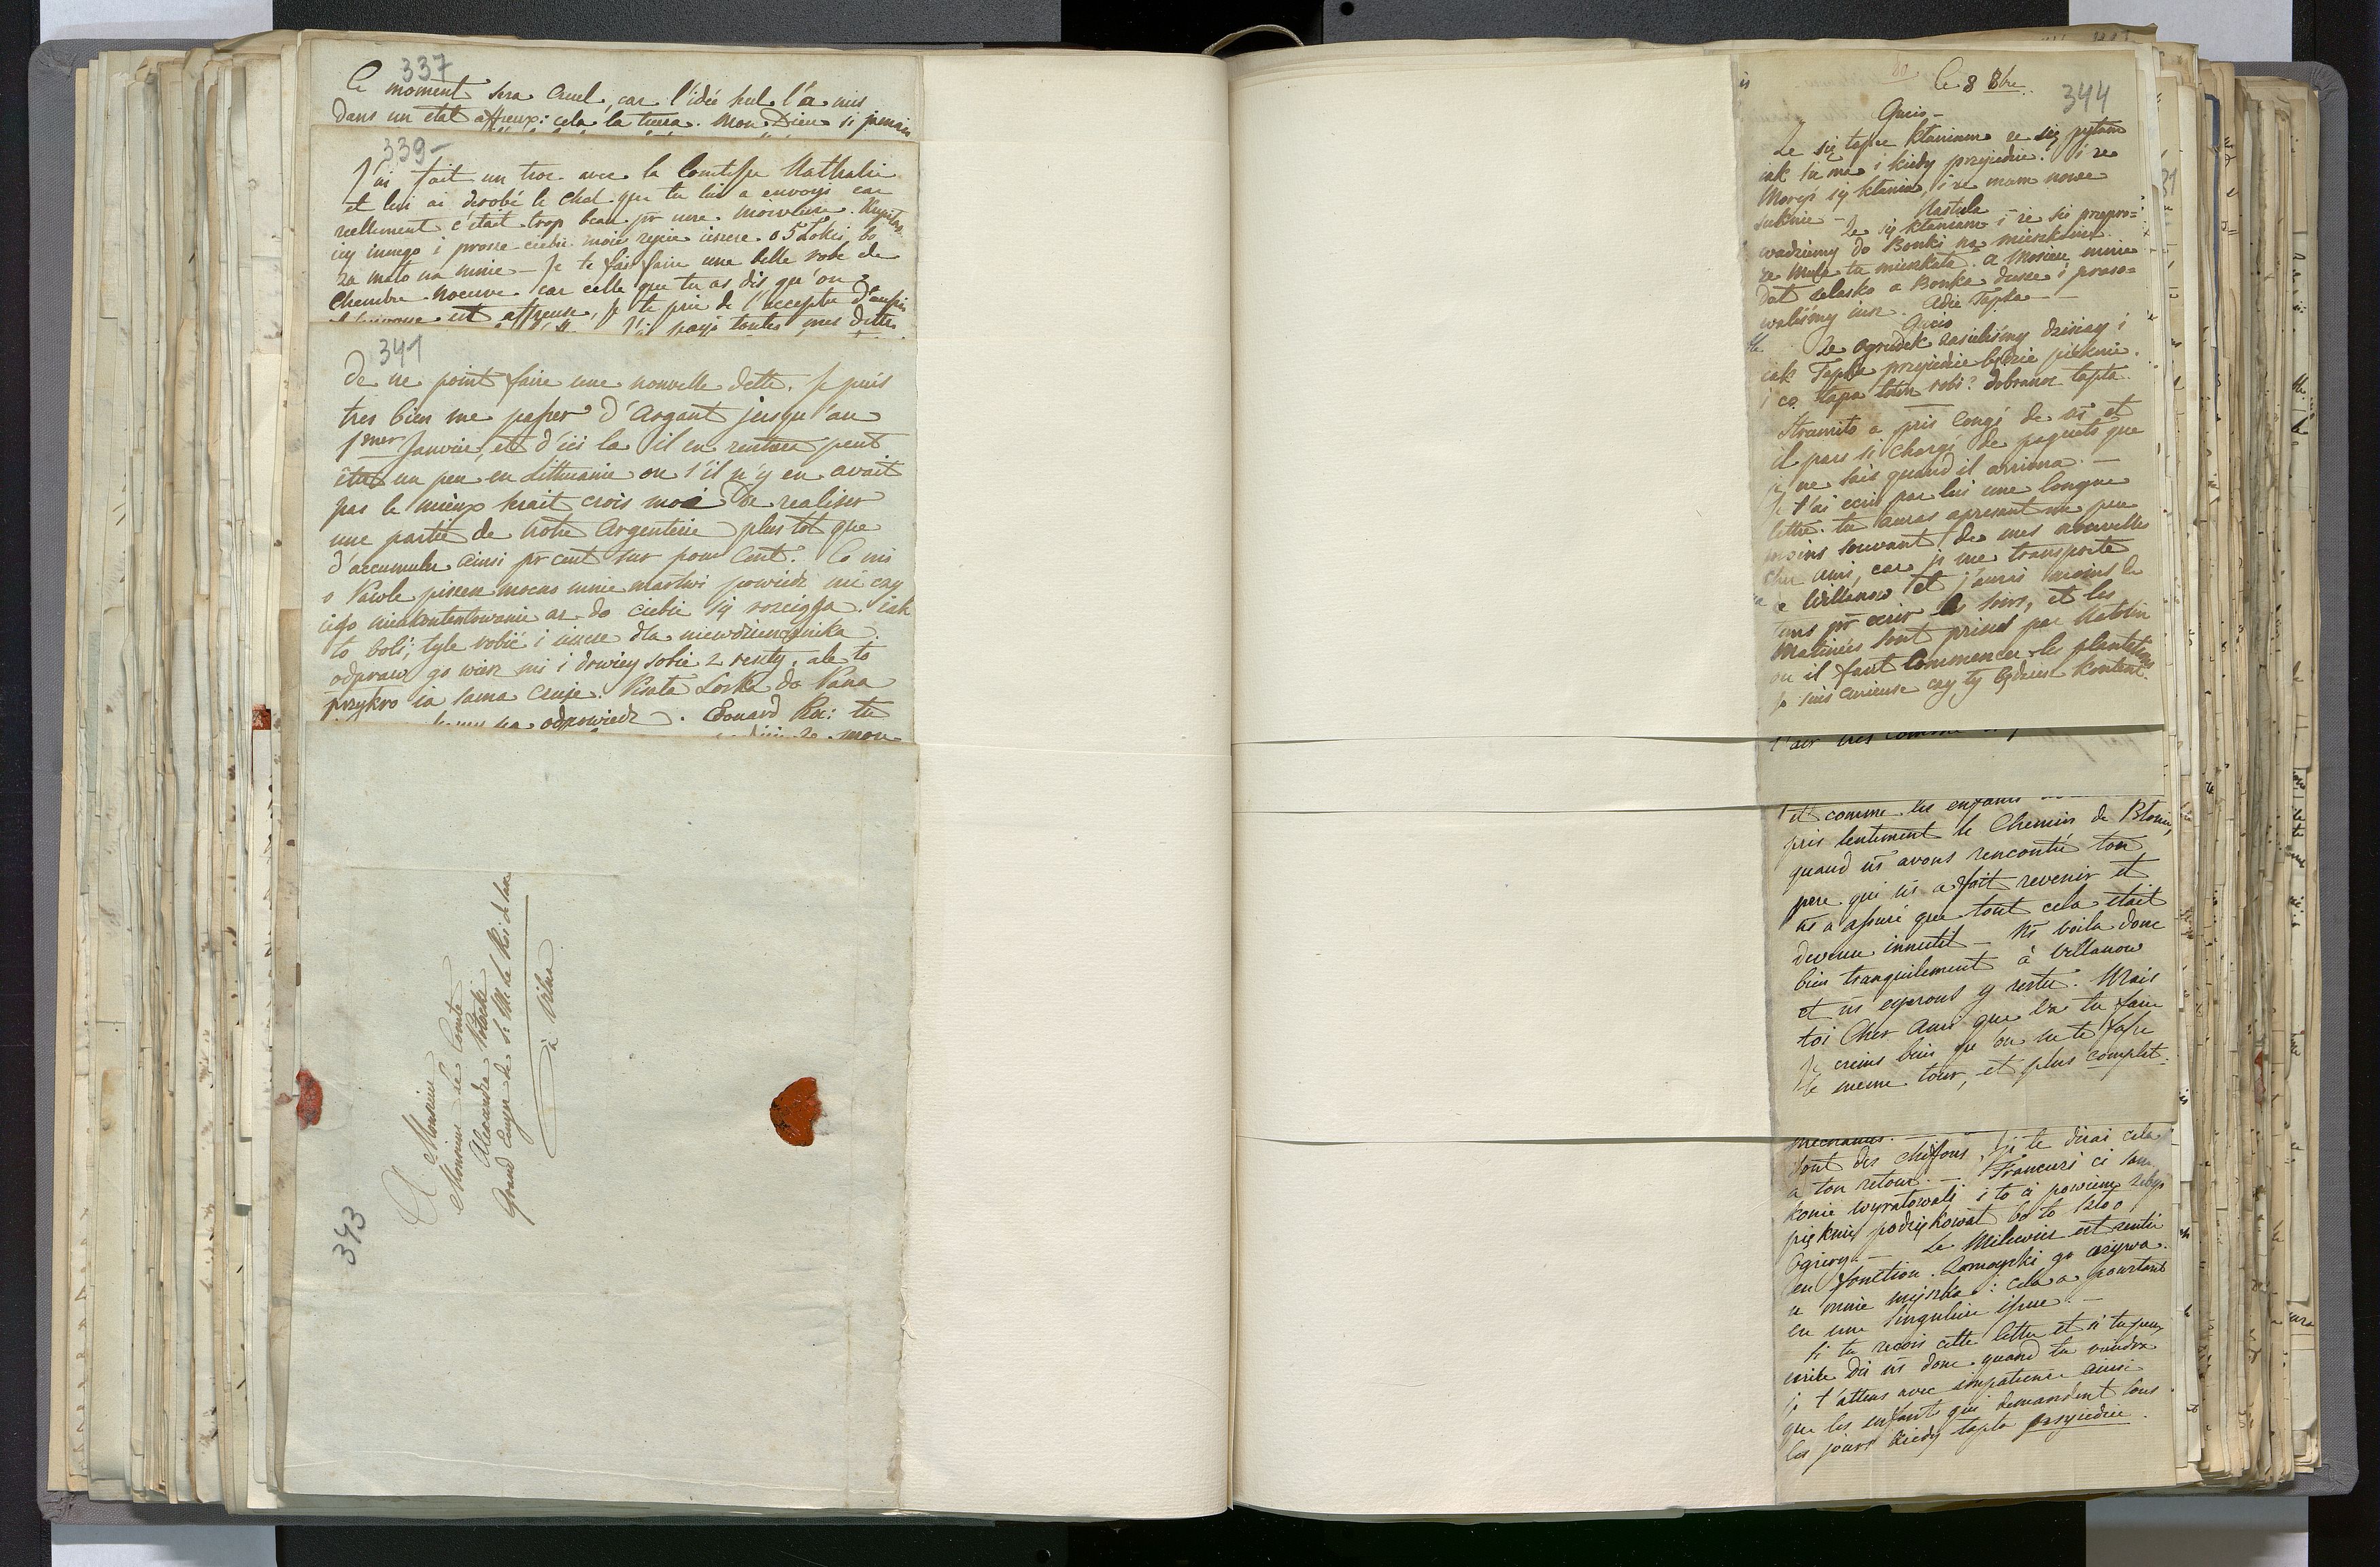 337
Ce moment sera cruel, car l'idée seul l'a mis
dans un etat affreux: cela la tuera. Mon Dieu si jamais
339-
J'ai fait un troc avec la Comtesse Nathalie
et lui ai derobé le Chal que tu lui a envoyé car
reellement c'était trop beau pr une
iey innego i prosze ciebie moie zycie ieszcze o 5 Łokci bo
za mało na mnie – Je te fais faire une belle robe de
Chambre noeuve car celle que tu as dis qu'on
est affreuse, je te prie de l'accepter d'
J'ai payé toutes mes dettes
341
De ne point faire une nouvelle dette. Je puis
tres bien me passer d'argant jusqu'au
1mer Janvier, et d'ici la il en rentrera peut
être un peu en Lithuanie ou s'il n'y en avait
pas le mieux serait crois moi de realiser
une partie de notre Argenterie plus tot que
d'accumuler ainsi pr cent sur pour Cent. Co mi
o Karole piszesz mocno mnie martwi powiedz mi czy
iego niekontentowanie az do ciebie się rosciąga. iak
to boli; tyle robić i ieszcze dla niewdzięcznika
odpraw go wiesz mi i drwiey sobie z reszty, ale to
przykro ia sama czuje. Posta Loska do Pana
na odpowiedz. Edouard Rcz: tu
mon
A Monsieur
Monsieur le Comte
Alexandre Potocki
Grand Ecuyer de S: M: le Roi de Saxe
à Vilna
343
le 8 8bre
344
Gucio –
Ze się tapce kłaniam ze się pytam
iak się ma i kiedy przyiedzie. i ze
Moryś się kłania, i ze mam nowe
suknie –
Nastula
Ze się kłaniam i ze się przepro=
wadziemy do Bonki na mieszkanie
ze Mula tu mieszkała. a Mosieu mnie
dał zelasko a Bonka dusze i praso=
waliśmy Adie Tapka –
Gucio
Ze ogrudek zasieliśmy dzisiay i
iak Tapka przyiedzie będzie pieknie.
i co tapa tam robi? dobranoc tapta.
Stramito a pris Congé de ns et
il pars si Chargé de paquets que
je ne sais quand il arrivera. –
Je t'ai ecris par lui une longue
lettre. tu auras apresant un peu
moins souvant de mes nouvelles
cher ami, car je me transporte
a Willanow et j'aurois moins de
tems pr ecrir les soirs, et les
Matinées sont prises par Natolin
ou il faut commencer les plantations
Je suis curieuse czy ty będziesz kontent.
l'air tres comme
et comme les enfants
pris lentement le Chemin de Blonie,
quand ns avons rencontré ton
pere qui ns a fait revenir et
ns a assuré que tout cela etait
devenu innutil – Ns voila donc
bien tranquilement à Villanow
et ns esperons y rester. Mais
toi Cher Ami que va tu faire
Je crains bien qu'on ne te fasse
le meme tour, et plus complet.
mechantes. –
sont des chiffons, je te dirai cela
a ton retour. – Francuzi ci sam
konie wyratowali i to ci powiem zebyś
pięknie podziękował bo to 1200
Ogiery. – Le Milewicz est rentré
en fonction. Zamoyski go uzywa.
u mnie myszka: cela a pourtant
eu une singuliere issue. –
Si tu recois cette lettre et si tu peux
ecrire dis ns donc quand tu viendra
je t'attens avec impatience ainsi
que les enfants qui demandent tous
les jours kiedy tapta przyiedzie.